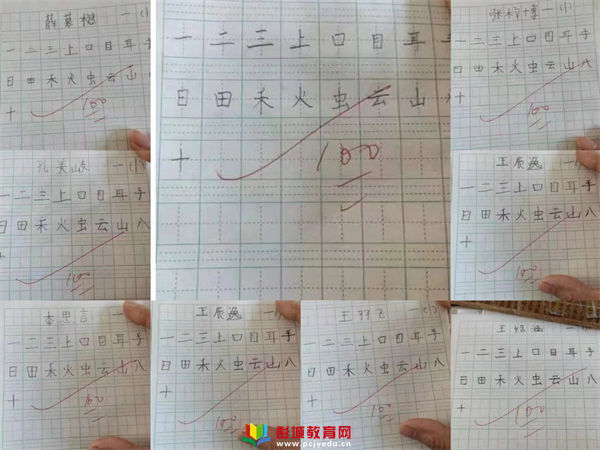 薛慕樾 一(1)
一二三上口目耳手
日田禾火虫云山八
十
100
一二三上口目耳手
日田禾火虫云山八
十
100
一(1)
一二三上口目耳手
日田禾火虫云山八
十
100
孔美岐 一(1)
一二三上口目耳手
日田禾火虫云山八
十
100
王辰逸 一(1)
一二三上口目耳手
日田禾火虫云山八
十
100
李思言 一
一二三上口目耳手
日田禾火虫云山八
十
100
王辰逸 一(1)
一二三上口目耳手
日田禾火虫云山八
十
100
一(1)
一二三上口目耳手
日田禾火虫云山八
十
100
一(1)
一二三上口目耳手
日田禾火虫云山八
十
100
彭城教育网
www.pcjyedu.cn